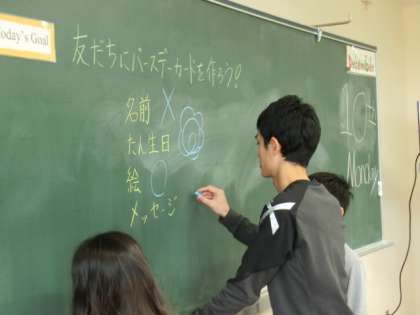 Today's Goal
友だちにバースデーカードを作ろう!
名前 ×
たん生日
絵
メッセージ
December
10
Monday